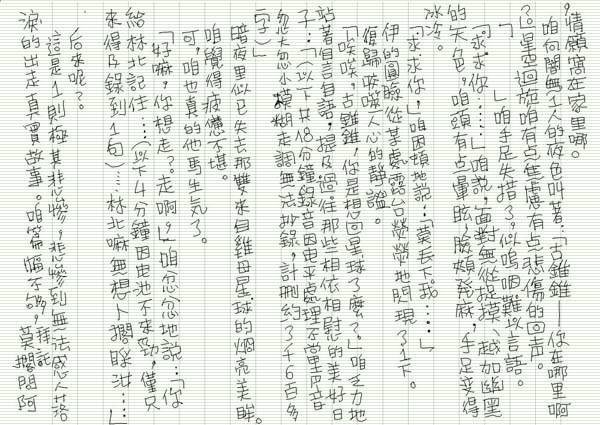 ，情願窩在家里哪。
咱向闇無1人的夜色叫著：「古錐錐——你在哪里啊
?」星空迴旋咱有点焦慮有点悲傷的回声。
「　」咱手足失措了，似嗚咽難以言語。
「求求你……」咱說，面對無從捉摸、越加幽黑
的天色，咱頭有点暈眩，臉頰発麻，手足変得
冰冷。
「求求你，」咱因頓地說：「莫丟下我……」
伊的圓臉從某處露台熒熒地閃現了1下。
復歸啖噬人心的靜謐。
「唉唉，古錐錐，你是想回星球了麼？」咱乏力地
站著自言自語，提及過往那些相依相慰的美好日
子：「（以下共18分鐘錄音因电平處理不當声音
忽大忽小模糊走調無法抄錄，計刪約3千6百多
字）」
暗夜里似已失去那雙來自雞母星球的烱亮美眸。
咱覺得疲憊不堪。
可，咱也真的他馬生気了。
「好嘛，你想走？走啊，」咱忿忿地說：「你
給林北記住……（以下4分鐘因电池不來勁，僅只
來得及錄到1句）……林北嘛無想卜擱睬汝……」
后來呢？
這是1則極其悲慘，悲慘到無法感人落
淚的出走真實故事。咱篇幅不夠，拜託莫擱問阿